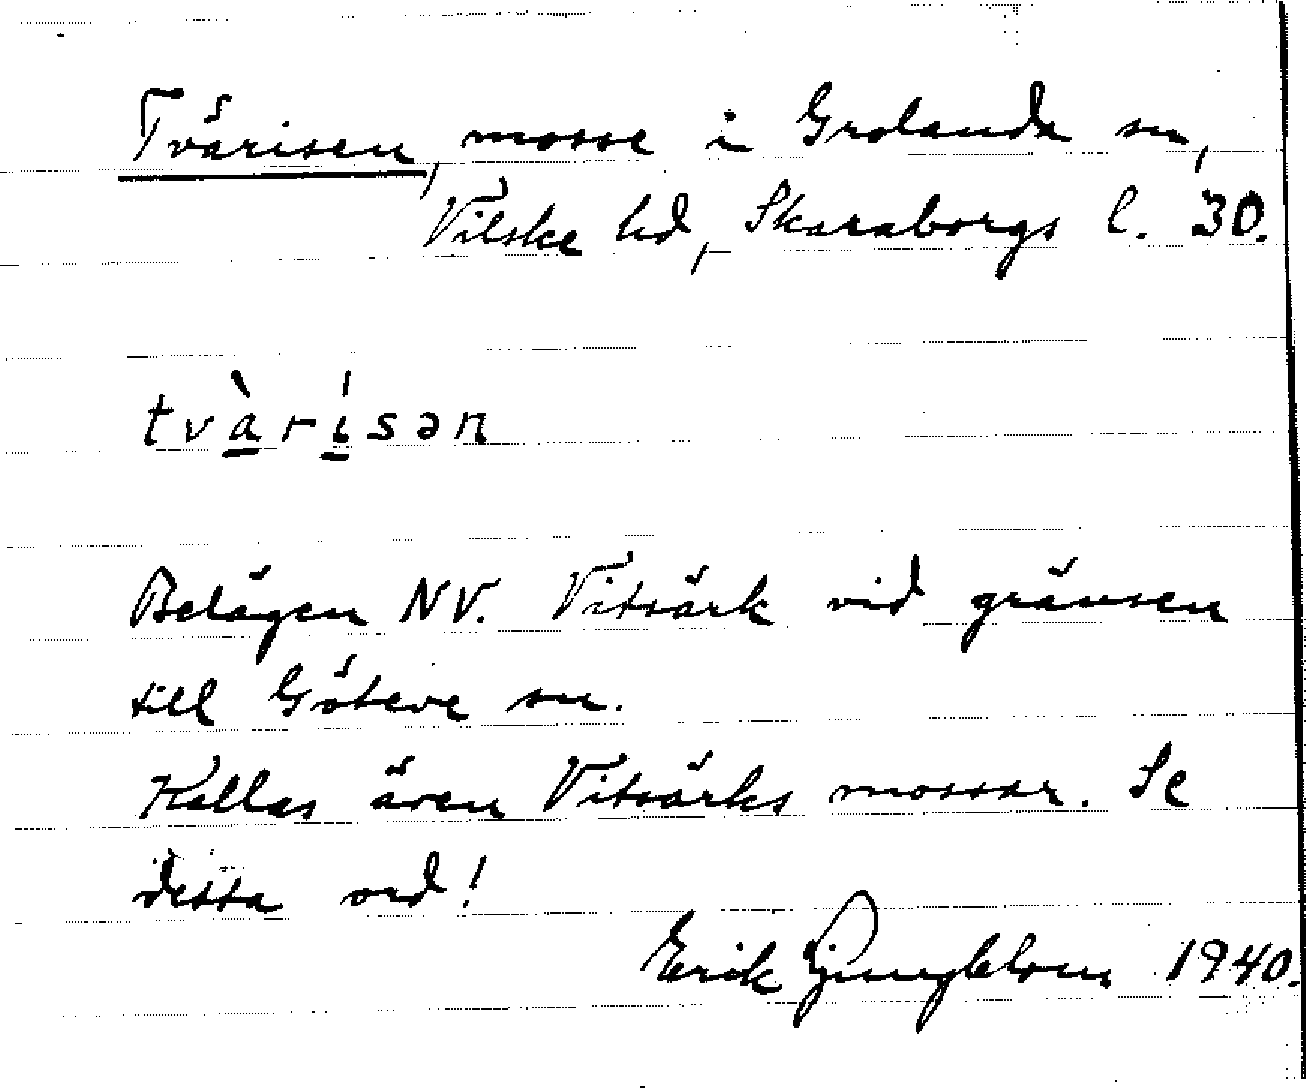 Tvärisen, mosse i Grolanda sn,
Vilske hd, Skaraborgs l. 30.
tvàrísən
Belägen NV. Vitsärk vid gränsen
till Göteve sn.
Kallas även Vitsärks mossar. Se
detta ord!
Erik Ljungblom 1940.